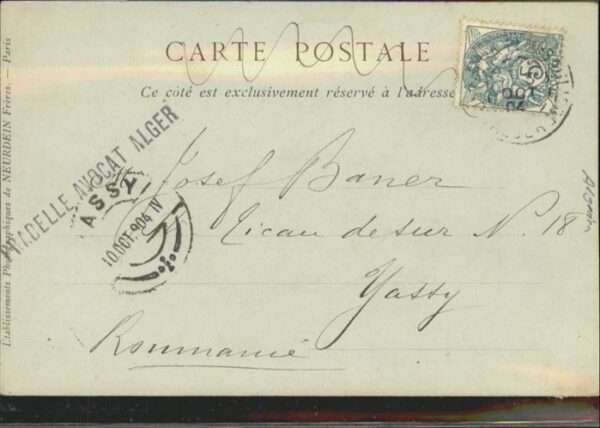 CARTE POSTALE
Ce côté est exclusivement réservé à l'adresse
L'établissements Photographiques de NEURDEIN Frères. — Paris
ADELLE AVOCAT ALGER
ASSY
10 OCT. 904 IV
5
OCT
04
Josef Baner
de sur N. 18
Yassy
Roumanie